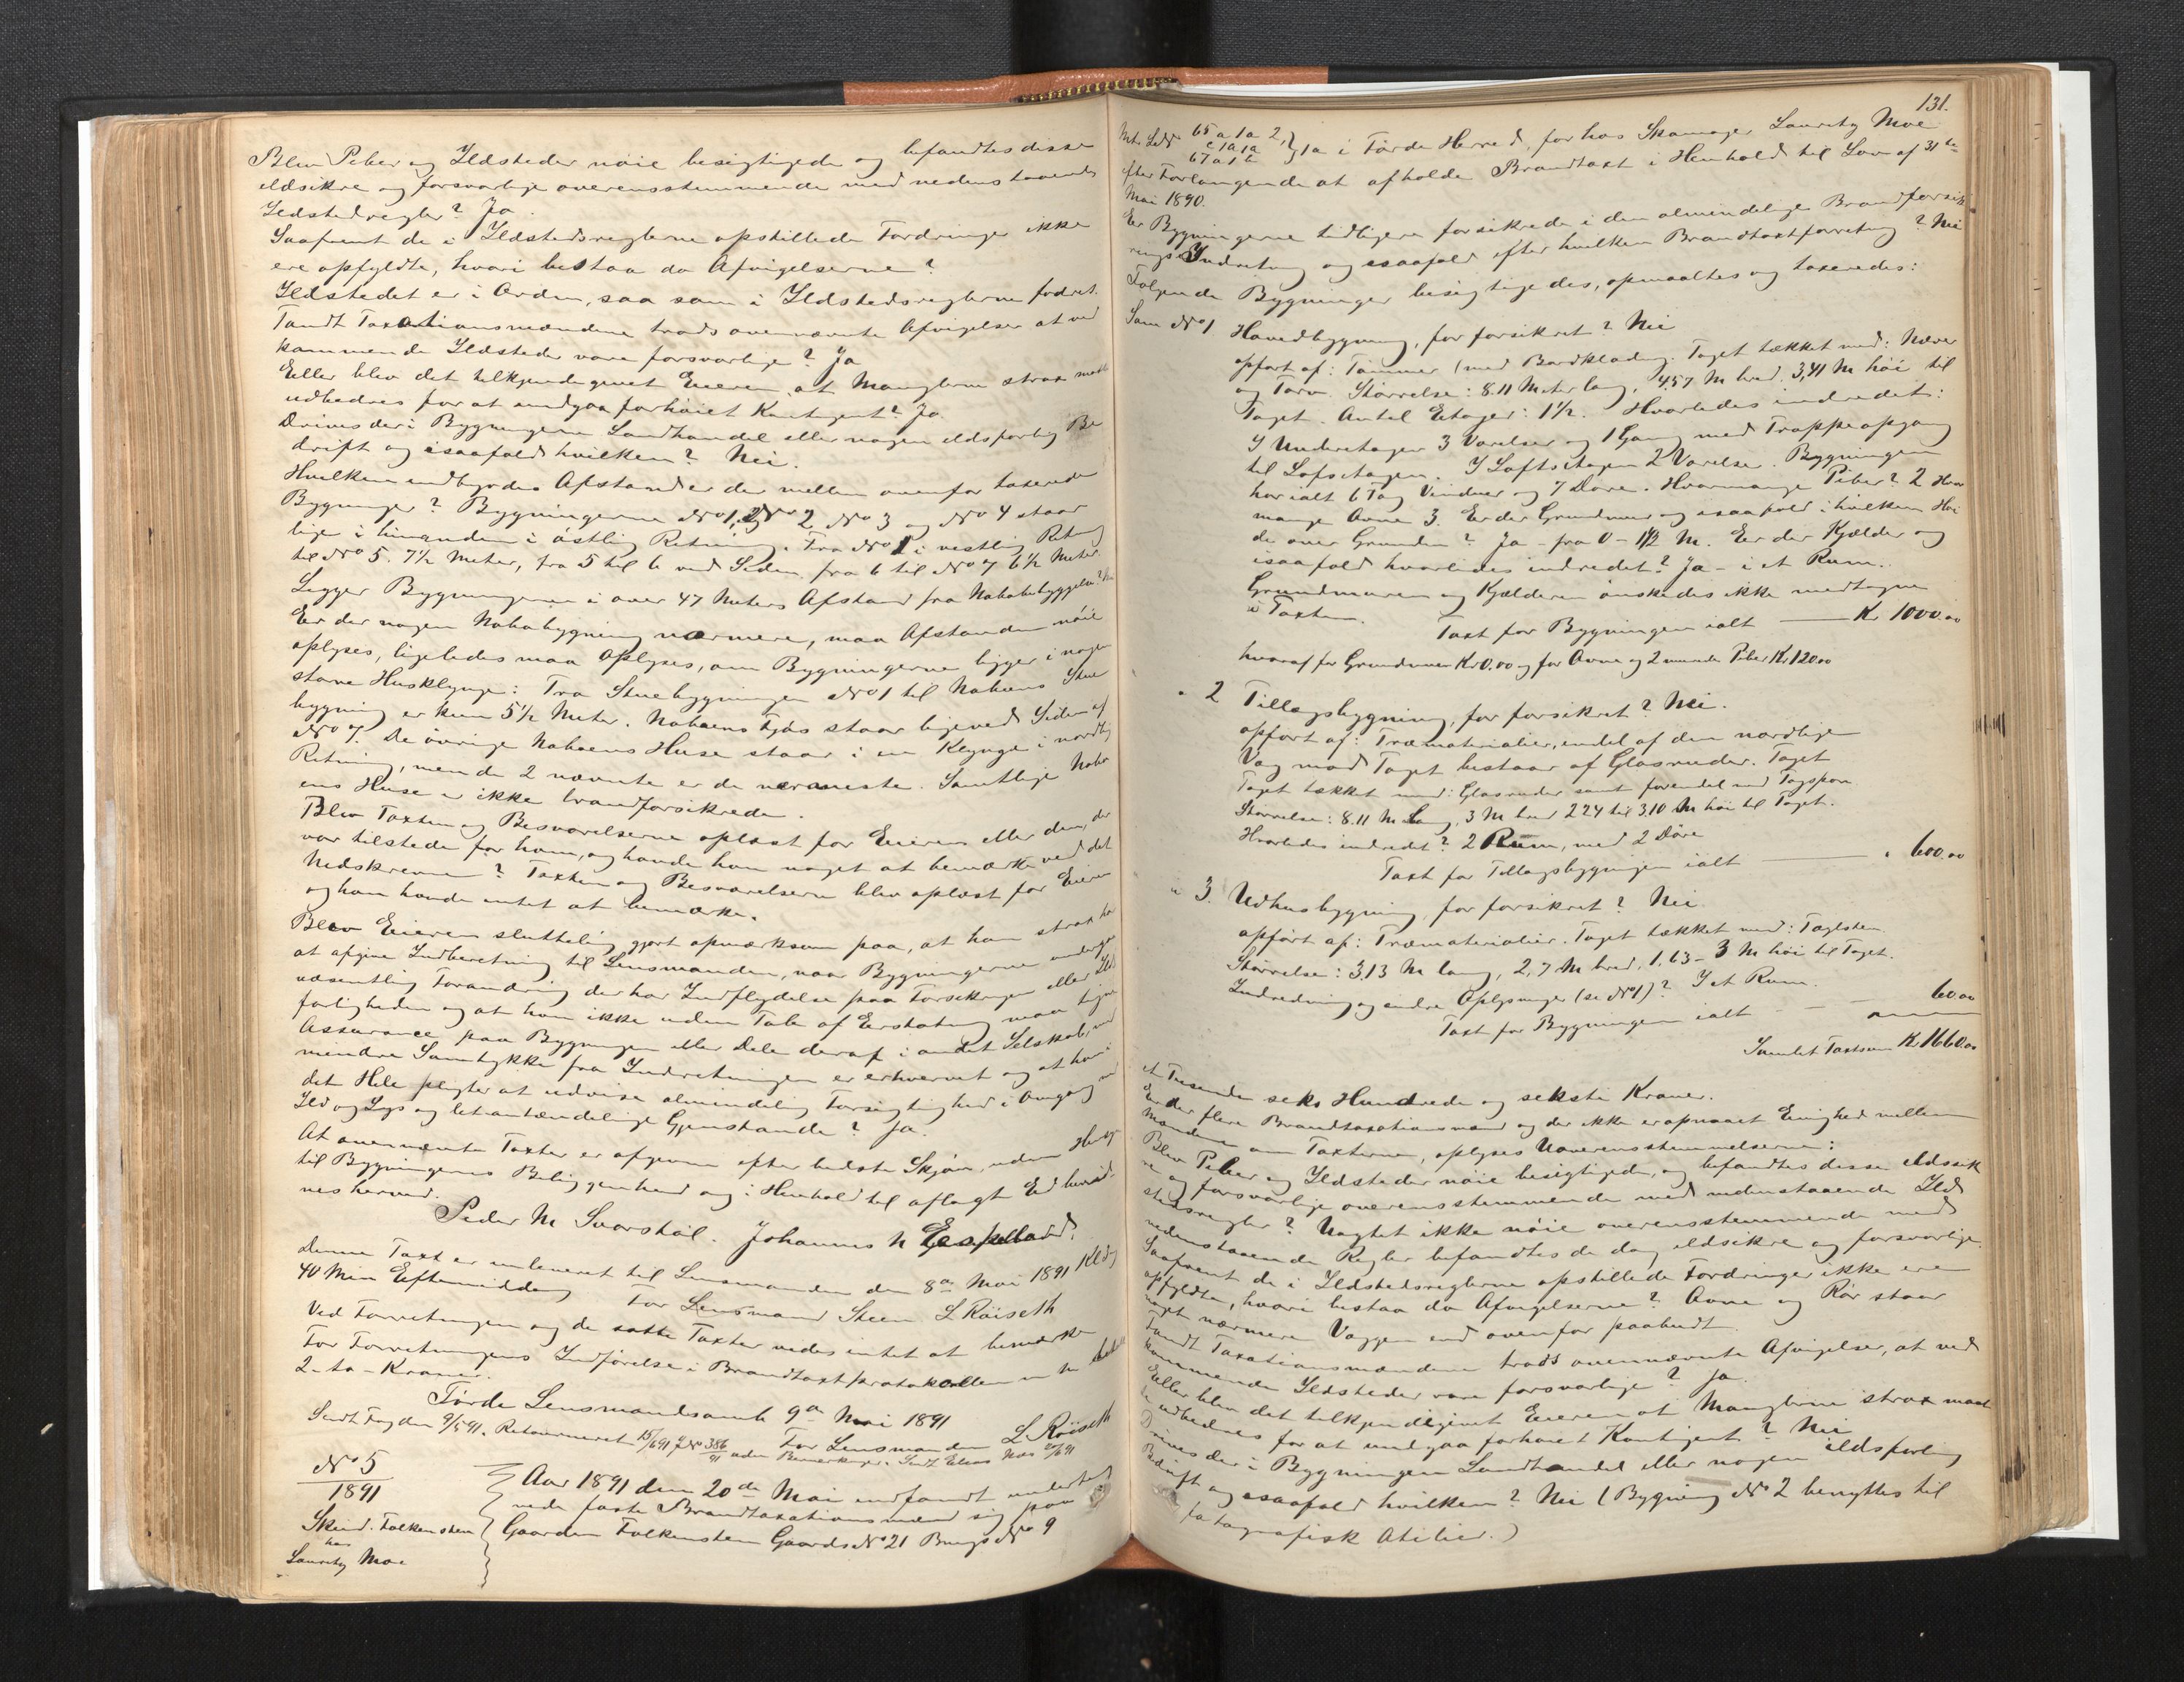 Blev Peber og Ildsteder nøie besigtigede og befandtes disse
ildsikre og forsvarlige overensstemmende med nedenstaaende
Ildstedregler? Ja.
Saafremt de i Ildstedsreglerne opstillede Fordringer ikke
ere opfyldte, hvori bestaa da Afvigelserne?
Ildstedet er i Orden, saa som i Ildstedsreglerne fodret.
Fandt Taxationsmændene trods ovennævnte Afvigelser at ved
kommende Ildsteder vare forsvarlige? Ja
Eller blev det tilkjendegivet Eieren at Manglerne strax maatte
udbedres for at undgaa forhøiet Kontigent? Ja
Drives der i Bygningerne Landhandel eller nogen ildsfarlig Be
drift og isaafald hvilken? Nei.
Hvilken indbyrdes Afstand er der mellem ovenfor taxerede
Bygninger? Bygningerne No 1, No 2, No 3 og No 4 staar
lige i hinanden i østlig Retning. Fra No 1 i vestlig Retning
til No 5. 7½ Meter, fra 5 til 6 ved Siden fra 6 til No 7 6½ Meter.
Ligger Bygningerne i over 47 Meters Afstand fra Nabobebyggelse? Nei
Er der nogen Nabobygning nærmere, maa Afstanden nøie
oplyses, ligeledes maa Oplyses, om Bygningerne ligger i nogen
større Husklynge: Fra Stuebygningen No 1 til Naboens Stue
bygning er kun 5½ Meter. Naboens Fjøs staar ligeved Siden af
No 7. De øvrige Naboens Huse staar i en Klynge i nordlig
Retning, men de 2 nævnte er de nærmeste. Samtlige Nabo
ens Huse er ikke brandforsikrede.
Blev Taxten og Besvarelserne oplæst for Eieren eller den, der
var tilstede for ham, og havde han noget at bemærke ved det
Nedskrevne? Taxten og Besvarelserne blev oplæst for Eieren
og han havde intet at bemærke.
Blev Eieren sluttelig gjort opmærksom paa, at han strax har
at afgive Indberetning til Lensmanden, naar Bygningerne undergaar
væsentlig Forandring der har Indflydelse paa Forsikringen eller Ild
farligheden og at han ikke uden Tab af Erstatning maa tegne
Assurance paa Bygningen eller Dele deraf i andet Selskab, med
mindre Samtykke fra Indretningen er erhvervet og at han i
det Hele pligter at udvise almindelig Forsigtighed i Omgang med
Ild og Lys og letantændelige Gjenstande? Ja.
At ovennævnte Taxter er afgivne efter bedste Skjøn, uden Hensyn
til Bygningernes Beliggenhed og i Henhold til aflagt Ed bevid-
nes herved.
Peder M Svorstøl. Johannes N Espeland.
Denne Taxt er indleveret til Lensmanden den 8de Mai 1891 Kl 
40 Min Eftermiddag For Lensmand Steen L Røiseth
Ved Forretningen og de satte Taxter vedes intet at bemærke
For Forretningens Indførelse i Brandtaxtprotokollen er
2 - to - Kroner.
Førde Lensmandsamt 9de Mai 1891
For Lensmanden L. Røiseth
Sendt Fogden 9/5 91. Retourneret 15/6 91 J No 386/91 uden Bemærkninger. Sendt Elias
No 5
1891
Skind. Falkensten
hos
Lauritz Moe
Aar 1891 den 20de Mai indfandt underteg
nede faste Brandtaxationsmænd sig paa
Gaarden Falkensten Gaards No 21 Brugs No 9
131.
Mt. Lb No 65 a 1a 2, c 1a 1a 67 a 1 b } 1a i Førde Herred, for hos Skomager Lauritz Moe
efter Forlangende at afholde Brandtaxt i Henhold til Lov af 31te
Mai 1890.
Er Bygningerne tidligere forsikrede i den almindelige Brandforsik
rings Indretning og isaafald efter hvilken Brandtaxtforretning? Nei
Følgende Bygninger besigtigedes, opmaaltes og taxeredes:
Som No 1 Hovedbygning, før forsikret? Nei
opført af: Tømmer (med Bordklædning. Taget tækket med: Næver
og Torv. Størrelse: 8.11 Meter lang, 4,57 M bred. 3,41 M høi til
Taget. Antal Etager: 1½. Hvorledes indredet:
I Underetagen 3 Værelser og 1 Gang med Trappeopgang
til Loftsetagen. I Loftsetagen 2 Værelser. Bygningen
har ialt 6 Fag Vinduer og 7 Døre. Hvormange Piber? 2 Hvor
mange Ovne 3. Er der Grundmur og isaafald i hvilken Høi
de over Grunden? Ja - fra 0 - 1½ M. Er der Kjælder og
isaafald hvorledes indredet? Ja - i et Rum.
Grundmuren og Kjælderen ønskedes ikke medtagen
i Taxten. Taxt for Bygningen ialt — Kr 1000.00
hvoraf for Grundmuren Kr 0.00 og for Ovne og 2 murede Piber Kr 120.00
" 2 Tillægsbygning, før forsikret? Nei.
opført af: Træmaterialier, endel af den nordlige
Væg mod Taget bestaar af Glasruder. Taget
Taget tækket med: Glasruder samt forendel med Tagspon
Størrelse: 8.11 M Lang, 3 M bred 2.24 til 3.10 M høi til Taget.
Hvorledes indredet? 2 Rum, med 2 Døre
Taxt for Tillægsbygningen ialt — " 600.00
" 3. Udhusbygning, før forsikret? Nei
opført af: Træmaterialier. Taget tækket med: Taglsten.
Størrelse: 3,13 M lang, 2,7 M bred, 1.63 - 3 M høi til Taget.
Indredning og andre Oplysninger (se No 1)? I et Rum.
Taxt for Bygningen ialt - — 60.00
Samlet Taxtsum Kr 1660.00
et Tusende seks Hundrede og seksti Kroner.
Er der flere Brandtaxationsmænd og der ikke er opnaaet Enighed mellem
Mændene om Taxterne, oplyses Uoverensstemmelserne:
Blev Peber og Ildsteder nøie besigtigede, og befandtes disse ildssik
re og forsvarlige overensstemmende med nedenstaaende Ild
stedsregler? Uagtet ikke nøie overensstemmende med
nedenstaaende Regler befandtes de dog ildsikre og forsvarlige.
Saafremt de i Ildstedsreglerne opstillede Fordringer ikke ere
opfyldte, hvori bestaa da Afvigelserne? Ovne og Rør staar
noget nærmere Væggen end ovenfor paabudt.
Fandt Taxationsmændene trods ovennævnte Afvigelser, at ved
kommende Ildsteder vare forsvarlige? Ja.
Eller blev det tilkjendegivet Eieren at Manglerne strax maat
te udbedres for at undgaa forhøiet Kontigent? Nei
Drives der i Bygningen Landhandel eller nogen ildsfarlig
Bedrift og isaafald hvilken? Nei (Bygning No 2 benyttes til
fotografisk Atelier.)